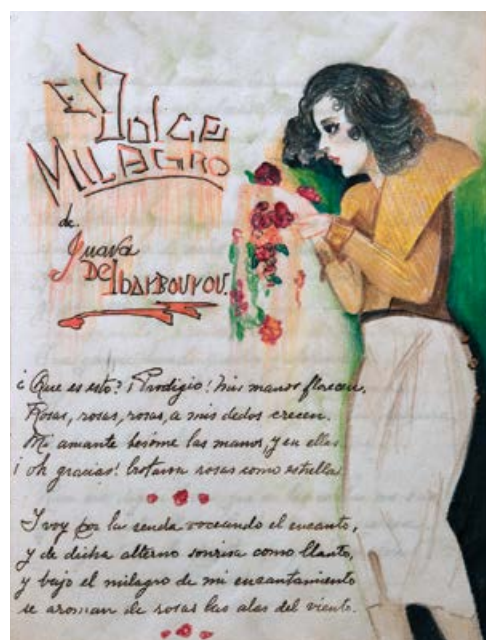 El Dolce
MILAGRO
de.
Juana
DE Ibarbourou
¿Que es esto? ¡Prodigio! mis manos florecen.
Rosas, rosas, rosas, a mis dedos crecen.
Mi amante besóme las manos, y en ellas
¡oh gracias! brotaron rosas como estrellas
Y voy por la senda voceando el encanto,
y de dicha alterno sonrisa como llanto,
y bajo el milagro de mi encantamiento
se aroman de rosas las alas del viento.